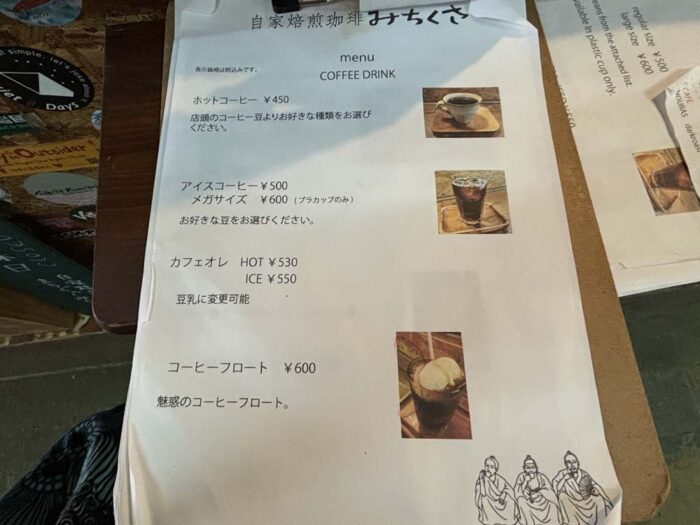 自家焙煎珈琲 みちくさ
menu
表示価格は税込みです。
COFFEE DRINK
ホットコーヒー ¥450
店頭のコーヒー豆よりお好きな種類をお選び
ください。
アイスコーヒー¥500
メガサイズ ¥600 (プラカップのみ)
お好きな豆をお選びください。
カフェオレ HOT ¥530
ICE ¥550
豆乳に変更可能
コーヒーフロート ¥600
魅惑のコーヒーフロート。
regular size ¥500
large size ¥600
available in plastic cup only.
beans from the attached list.
simple. let's
Days
Outsider!